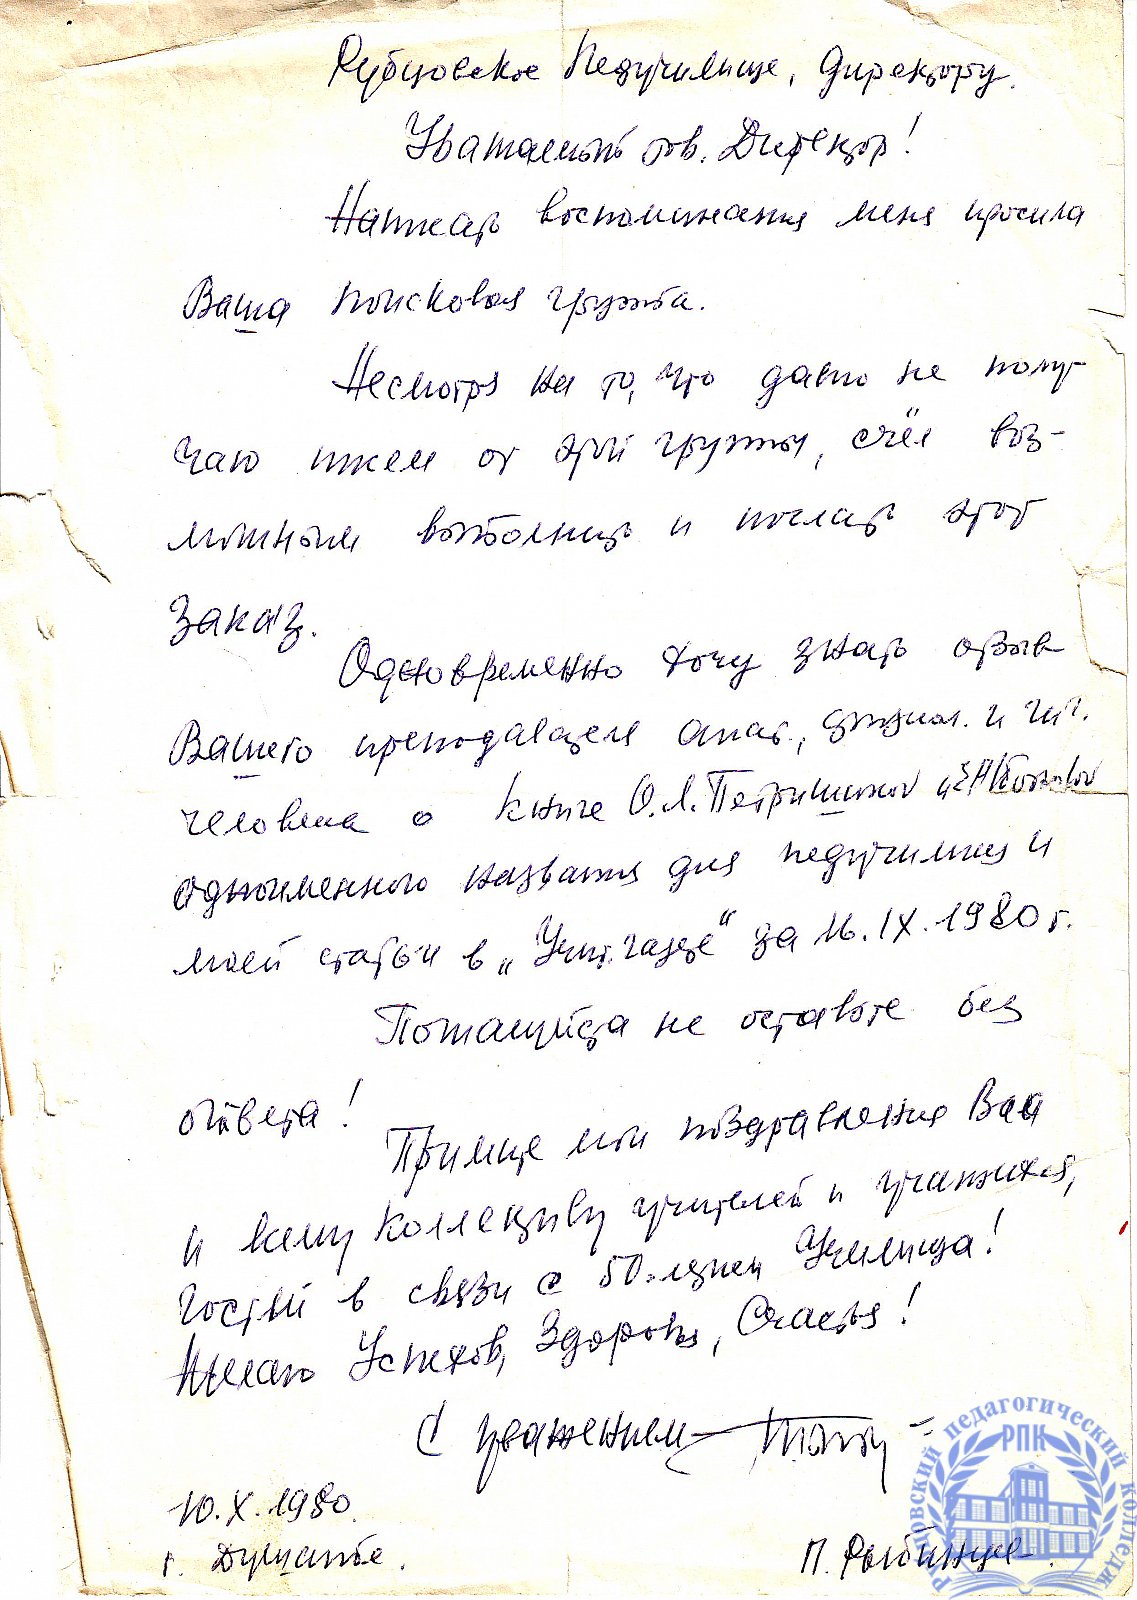 Рубцовское Педучилище, Директору.
Уважаемый тов. Директор!
Написать воспоминания меня просила
Ваша поисковая группа.
Несмотря на то, что давно не полу-
чаю писем от этой группы, счёл воз-
можным выполнить и послать этот
заказ.
Одновременно хочу знать отзыв
Вашего преподавателя анат., физиол. и гиг.
человека о книге О.Л. Петришиной
одноименного названия для педучилищ и
моей статьи в „Учит. газете“ за 16.IX.1980 г.
Пожалуйста не оставьте без
ответа!
Примите мои поздравления Вам
и всему коллективу учителей и учащихся,
гостей в связи с 50-летием Училища!
Желаю Успехов, Здоровья, Счастья!
С уважением
10.X.1980.
г. Душанбе.
П. Рыбинцев.
Рубцовский педагогический колледж
РПК